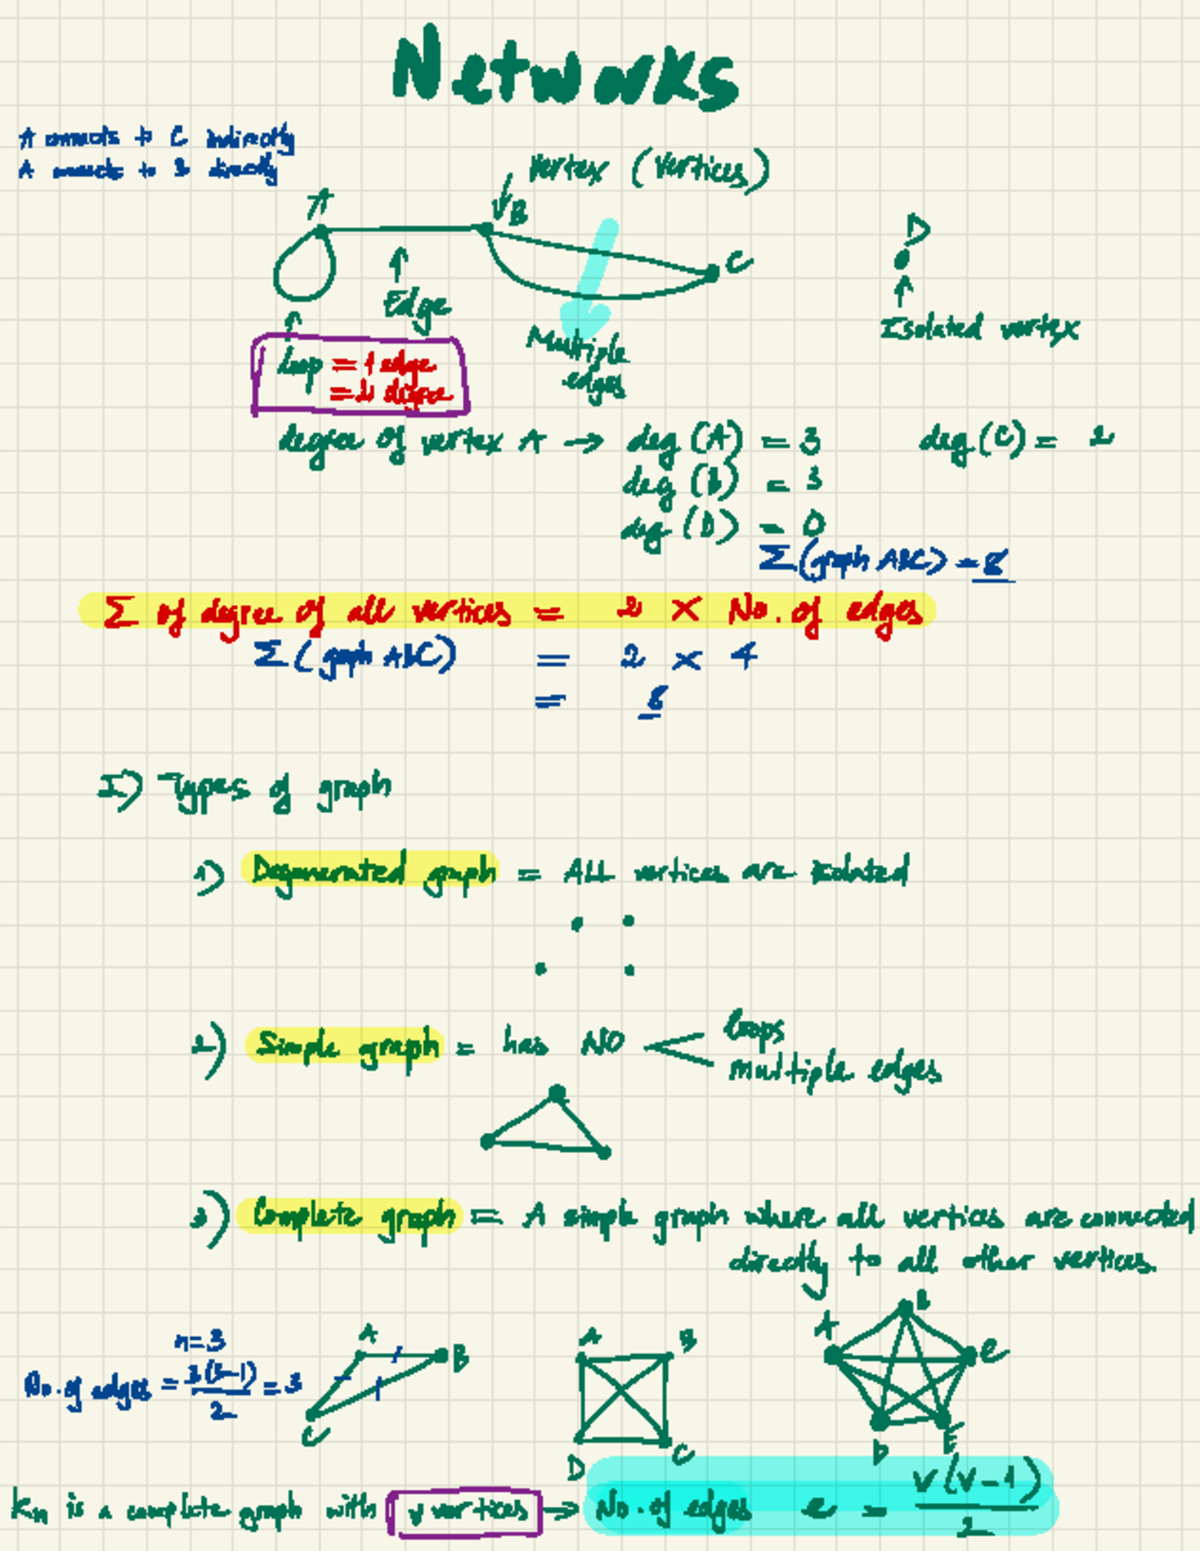 Networks
A connects to C indirectly
A connects to B directly
Vertex (Vertices)
A
B
C
D
Edge
Isolated vertex
Loop = 1 edge
= 2 degree
Multiple
edges
degree of vertex A → deg (A) = 3 deg (C) = 2
deg (B) = 3
deg (D) = 0
Σ (graph ABC) = 8
Σ of degree of all vertices = 2 × No. of edges
Σ (graph ABC) = 2 × 4
= 8
I) Types of graph
1) Degenerated graph = ALL vertices are isolated
2) Simple graph = has NO loops
multiple edges
3) Complete graph = A simple graph where all vertices are connected
directly to all other vertices.
n=3
No. of edges = 3(3-1)/2 = 3
A B
C
A B
D C
B
A C
D E
Kn is a complete graph with v vertices → No. of edges e = v(v-1)/2